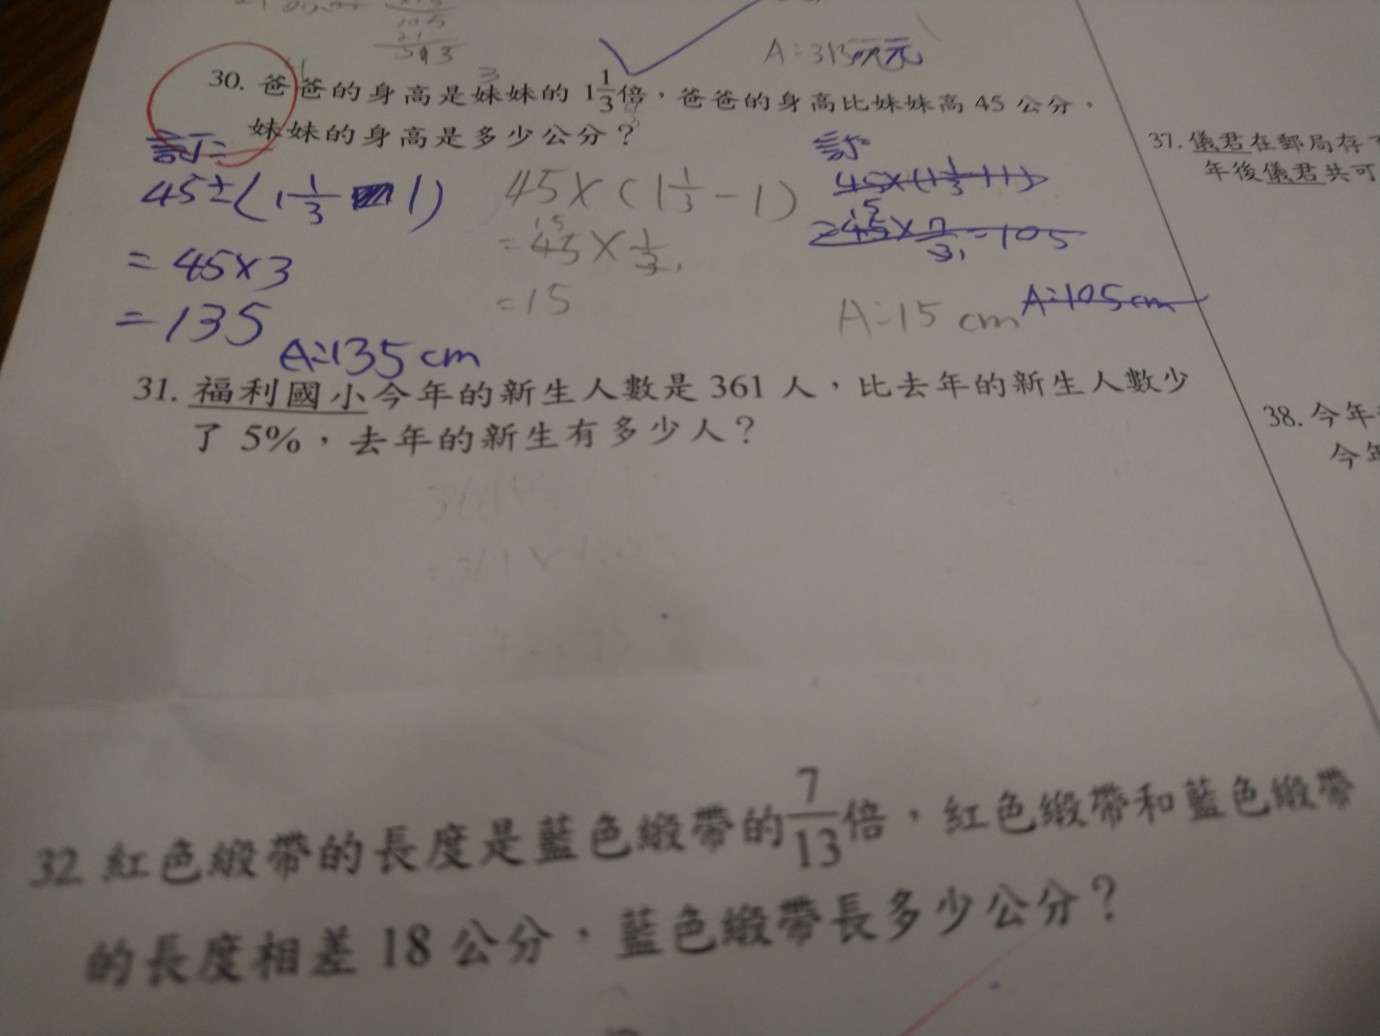 A=315元
30. 爸爸的身高是妹妹的 1 1/3 倍，爸爸的身高比妹妹高 45 公分，
妹妹的身高是多少公分？
訂=
45÷(1 1/3 - 1)
= 45×3
= 135
A=135 cm
45×(1 1/3 - 1)
= 45 × 1/3
= 15
A=15 cm
訂=
45×(1 1/3 + 1)
= 45 × 7/3 = 105
A=105 cm
31. 福利國小今年的新生人數是 361 人，比去年的新生人數少
了 5%，去年的新生有多少人？
32 紅色緞帶的長度是藍色緞帶的 7/13 倍，紅色緞帶和藍色緞帶
的長度相差 18 公分，藍色緞帶長多少公分？
37. 儀君在郵局存
年後儀君共可
38. 今年
今年